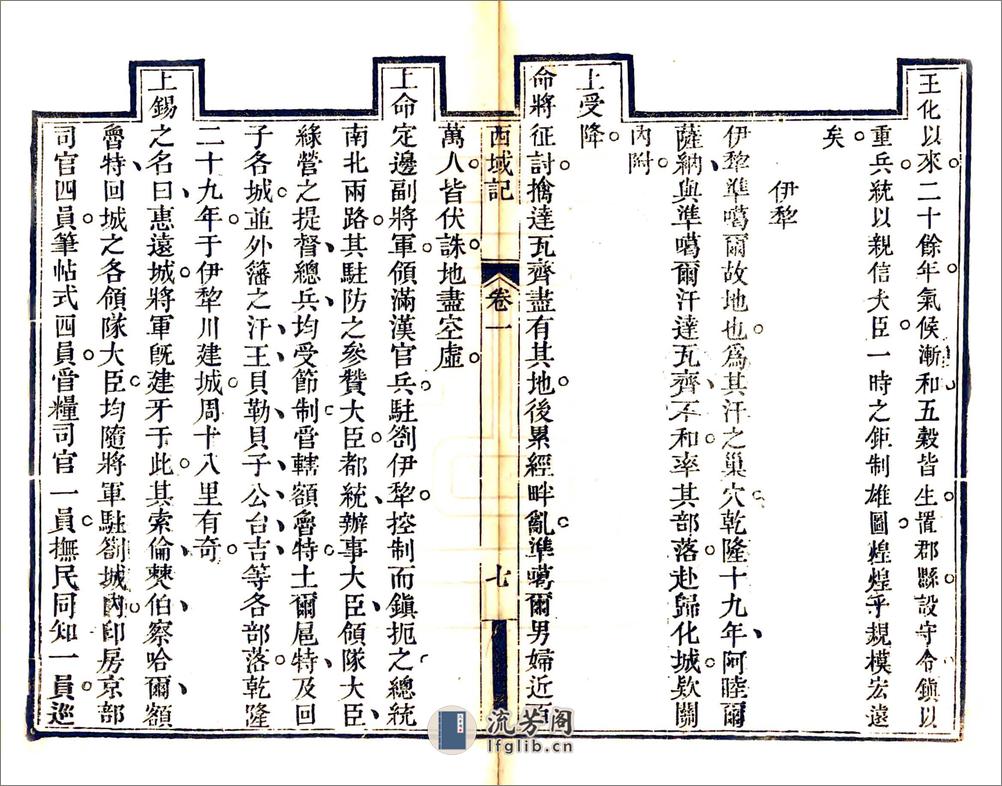 王化以來二十餘年氣候漸和五穀皆生置郡縣設守令鎮以
重兵統以親信大臣一時之鉅制雄圖煌煌乎規模宏遠
矣
伊犂
伊犂準噶爾故地也爲其汗之巢穴乾隆十九年阿睦爾
薩納與準噶爾汗達瓦齊不和率其部落赴歸化城欵關
內附
上受降
命將征討擒達瓦齊盡有其地後累經畔亂準噶爾男婦近百
西域記 卷一 七
萬人皆伏誅地盡空虛
上命定邊副將軍領滿漢官兵駐劄伊犂控制而鎮扼之總統
南北兩路其駐防之參贊大臣都統辦事大臣領隊大臣
緣營之提督總兵均受節制管轄額魯特土爾扈特及回
子各城並外藩之汗王貝勒貝子公台吉等各部落乾隆
二十九年于伊犂川建城周十八里有奇
上錫之名曰惠遠城將軍旣建牙于此其索倫僰伯察哈爾額
魯特回城之各領隊大臣均隨將軍駐劄城內印房京部
司官四員筆帖式四員管糧司官一員撫民同知一員巡
流芳阁
lfglib.cn